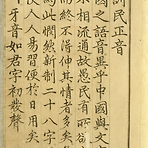 訓民正音
國之語音異乎中國與文
不相流通故愚民有所欲
而終不得伸其情者多矣
爲此憫然新制二十八字
使人人易習便於日用矣
ㄱ牙音如君字初發聲